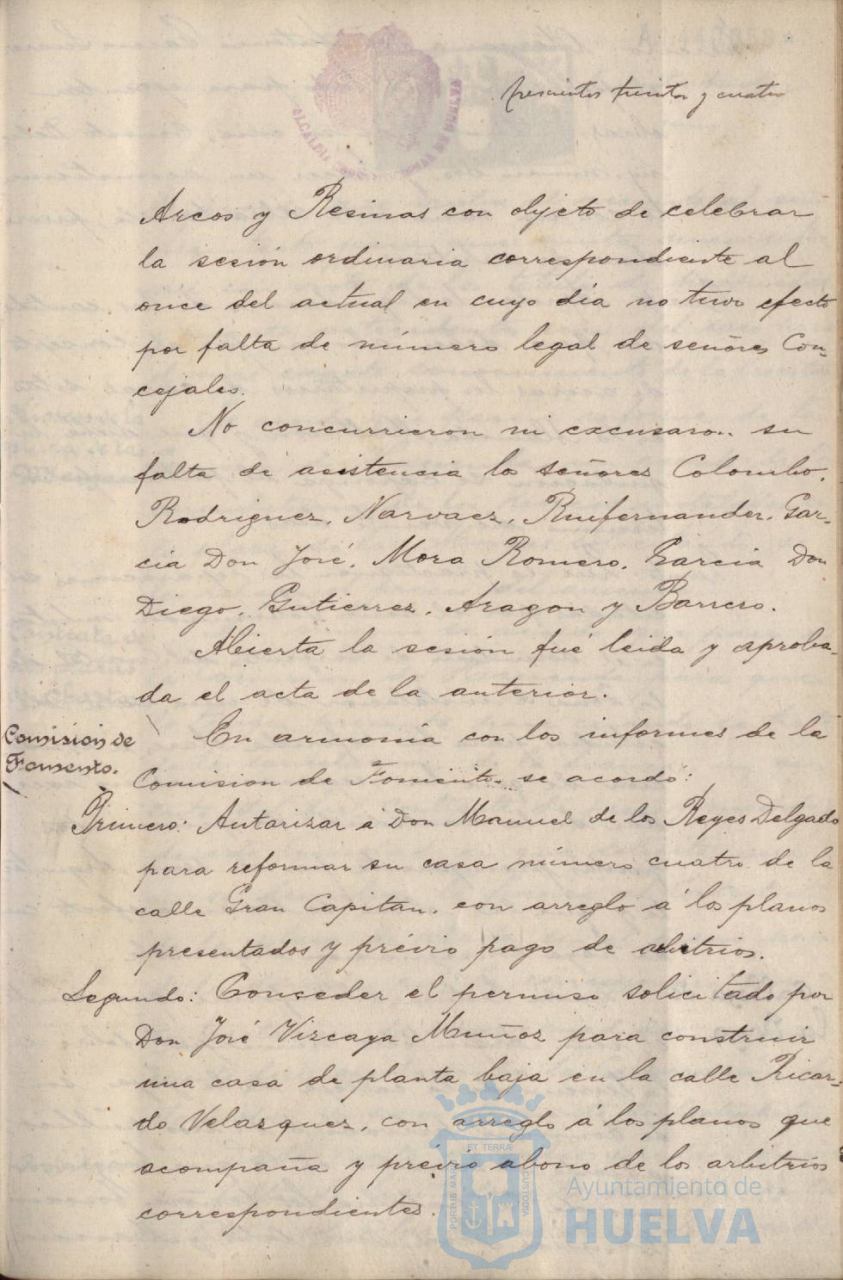 trescientos treinta y cuatro
Arcos y Resinas con objeto de celebrar
la sesión ordinaria correspondiente al
once del actual en cuyo día no tuvo efecto
por falta de número legal de señores Con-
cejales.
No concurrieron ni excusaron su
falta de asistencia los señores Colombo,
Rodriguez, Narvaez, Ruifernandez, Gar-
cia Don José, Mora Romero, Garcia Don
Diego, Gutierrez, Aragon y Barrero.
Abierta la sesión fué leida y aproba-
da el acta de la anterior.
Comision de
Fomento.
En armonia con los informes de la
Comision de Fomento se acordó:
Primero: Autorizar á Don Manuel de los Reyes Delgado
para reformar su casa número cuatro de la
calle Gran Capitan, con arreglo á los planos
presentados y prévio pago de arbitrios.
Segundo: Conceder el permiso solicitado por
Don José Vizcaya Muñoz para construir
una casa de planta baja en la calle Ricar-
do Velazquez, con arreglo á los planos que
acompaña y prévio abono de los arbitrios
correspondientes.
ALCALDIA
DE HUELVA
PORTUS MARIS
ET TERRÆ
CUSTODIA
Ayuntamiento de
HUELVA